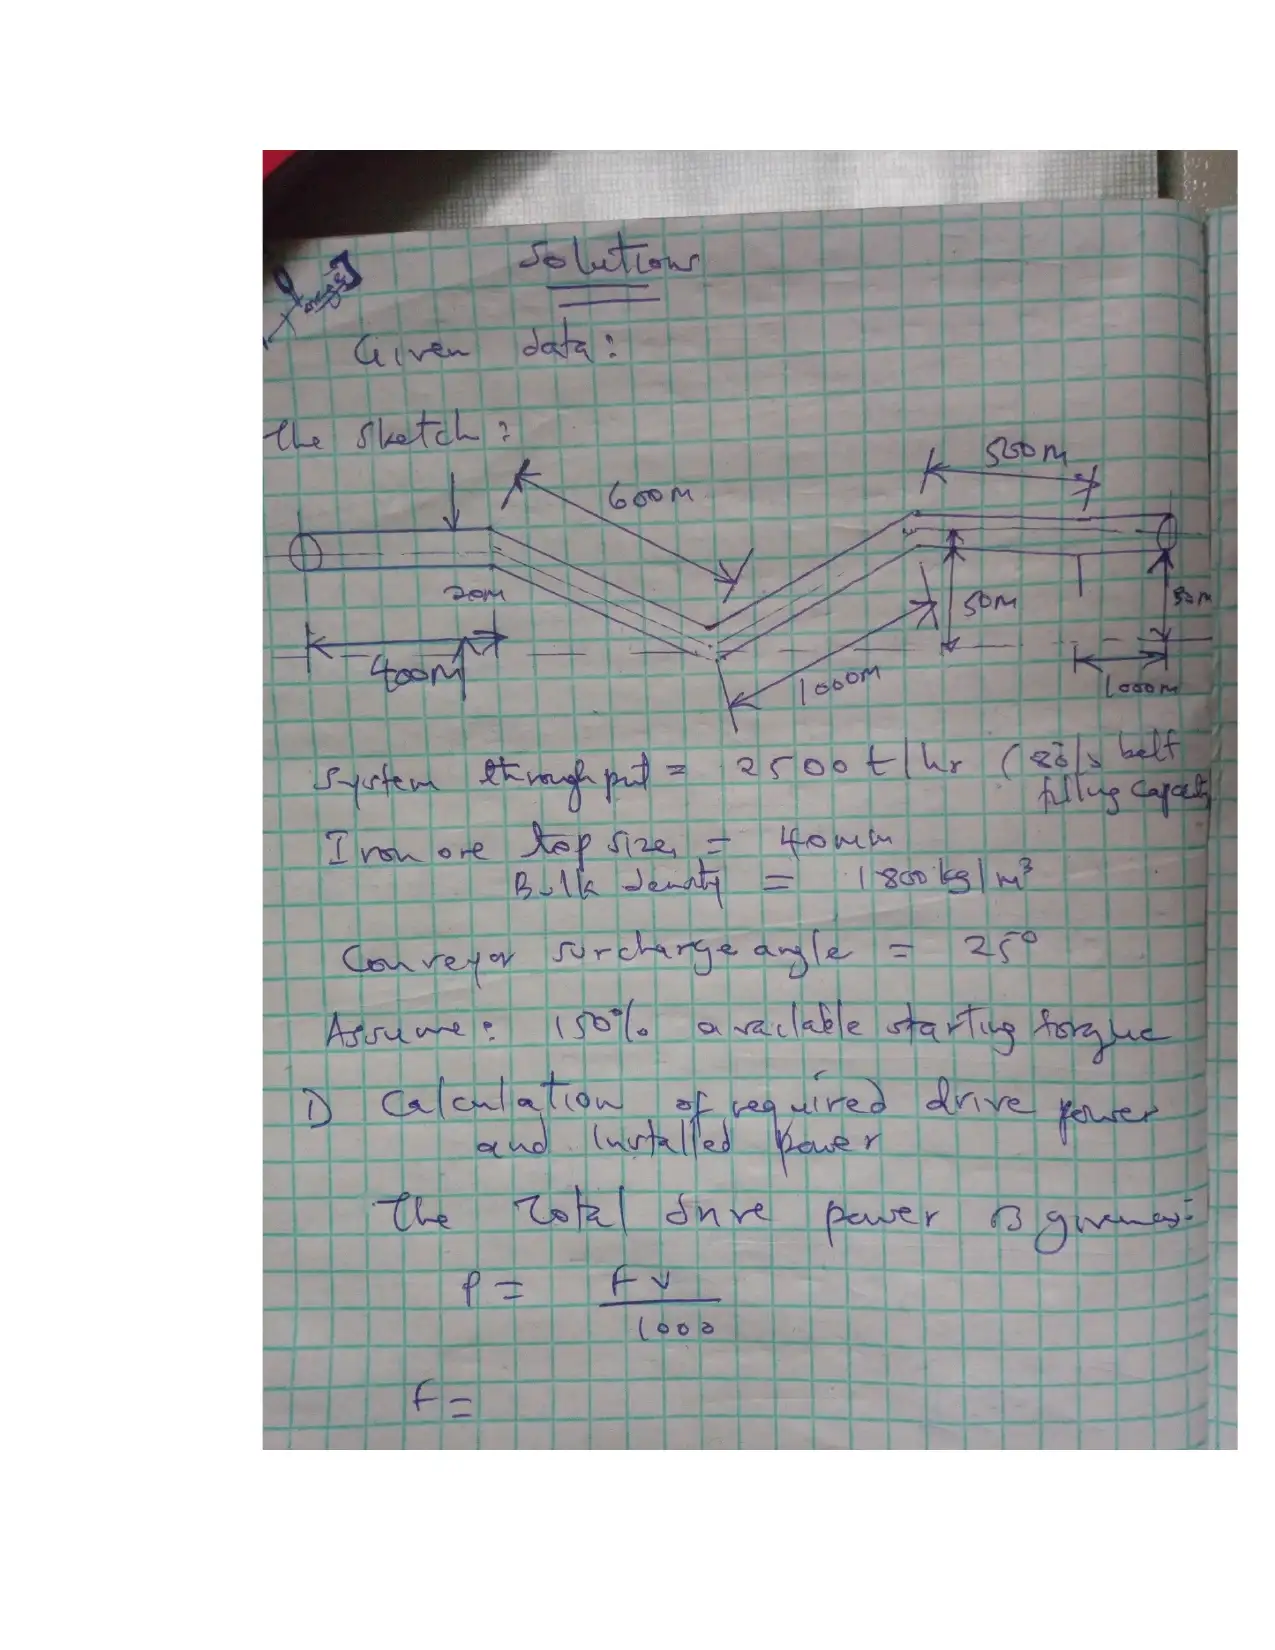 Solutions
Given data:
The sketch:
500m
600m
20m
50m
400m
1000m
1000m
System throughput = 2500 t/hr (80% belt
filling capacity
Iron ore top size, = 40mm
Bulk density = 1800 kg/m³
Conveyor surcharge angle = 25°
Assume: 150% available starting torque
1) Calculation of required drive power
and installed power
The total drive power is given as:
P = FV
1000
F =